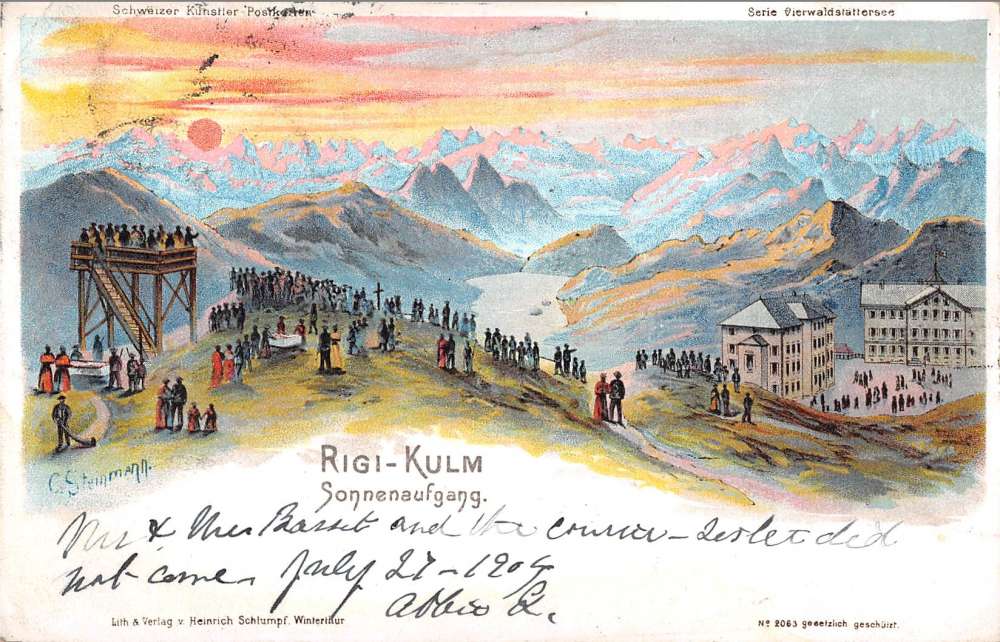 Schweizer Künstler Postkarten
Serie Vierwaldstättersee
C. Steinmann.
RIGI-KULM
Sonnenaufgang.
Mr & Mrs Basset and the courier - did
not come. July 27 - 190
Abbie
Lith & Verlag v. Heinrich Schlumpf, Winterthur
Nº 2063 gesetzlich geschützt.